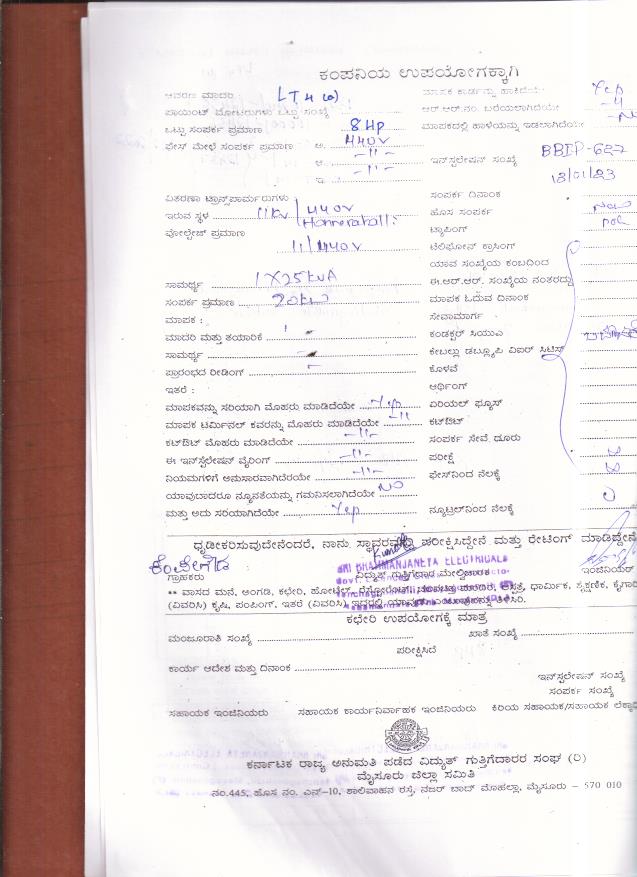 ಕಂಪನಿಯ ಉಪಯೋಗಕ್ಕಾಗಿ
ಆವರಣ ಮಾದರಿ LT 4 (a) ಮಾಪಕ ಕಾರ್ಡನ್ನು ಹಾಕಿದೆಯೇ Yep
ಪಾಯಿಂಟ್ ಮೋಟರುಗಳು ಒಟ್ಟು ಸಂಖ್ಯೆ ಆರ್.ಆರ್.ನಂ. ಬರೆಯಲಾಗಿದೆಯೇ -"
ಒಟ್ಟು ಸಂಪರ್ಕ ಪ್ರಮಾಣ 8HP ಮಾಪಕದಲ್ಲಿ ಹಾಳೆಯನ್ನು ಇಡಲಾಗಿದೆಯೇ
ಫೇಸ್ ಮೇಳೆ ಸಂಪರ್ಕ ಪ್ರಮಾಣ ಅ. 440V
ಆ. -11- ಇನ್‌ಸ್ಟಲೇಷನ್ ಸಂಖ್ಯೆ BBIP-627
ಇ. -11- 13/01/23
ವಿತರಣಾ ಟ್ರಾನ್ಸ್‌ಫಾರ್ಮರುಗಳು ಸಂಪರ್ಕ ದಿನಾಂಕ
ಇರುವ ಸ್ಥಳ 11kv/440V ಹೊಸ ಸಂಪರ್ಕ
ವೋಲ್ಟೇಜ್ ಪ್ರಮಾಣ ಟ್ಯಾಪಿಂಗ್
11/440V ಟೆಲಿಫೋನ್ ಕ್ರಾಸಿಂಗ್
ಯಾವ ಸಂಖ್ಯೆಯ ಕಂಬದಿಂದ
ಸಾಮರ್ಥ್ಯ 1X25KVA ಈ.ಆರ್.ಆರ್. ಸಂಖ್ಯೆಯ ನಂತರದ್ದು
ಸಂಪರ್ಕ ಪ್ರಮಾಣ 20KW ಮಾಪಕ ಓದುವ ದಿನಾಂಕ
ಮಾಪಕ : ಸೇವಾಮಾರ್ಗ
ಮಾದರಿ ಮತ್ತು ತಯಾರಿಕೆ ಕಂಡಕ್ಟರ್ ಸಿಯುಎ
ಸಾಮರ್ಥ್ಯ ಕೇಬಲ್ಲು ಡಬ್ಲ್ಯೂಪಿ ವಿಐಆರ್ ಸಿಟಿಸ್
ಪ್ರಾರಂಭದ ರೀಡಿಂಗ್ ಕೊಳವೆ
ಇತರೆ : ಆರ್ಥಿಂಗ್
ಮಾಪಕವನ್ನು ಸರಿಯಾಗಿ ಮೊಹರು ಮಾಡಿದೆಯೇ Yep ಏರಿಯಲ್ ಫ್ಯೂಸ್
ಮಾಪಕ ಟರ್ಮಿನಲ್ ಕವರನ್ನು ಮೊಹರು ಮಾಡಿದೆಯೇ -11 ಕಟ್‌ಔಟ್
ಕಟ್‌ಔಟ್ ಮೊಹರು ಮಾಡಿದೆಯೇ -11- ಸಂಪರ್ಕ ಸೇವೆ ದೂರು
ಈ ಇನ್‌ಸ್ಟೆಲೇಷನ್ ವೈರಿಂಗ್ -11- ಪರೀಕ್ಷೆ
ನಿಯಮಗಳಿಗೆ ಅನುಸಾರವಾಗಿದೆಯೇ -11- ಫೇಸ್‌ನಿಂದ ನೆಲಕ್ಕೆ
ಯಾವುದಾದರೂ ನ್ಯೂನತೆಯನ್ನು ಗಮನಿಸಲಾಗಿದೆಯೇ NO
ಮತ್ತು ಅದು ಸರಿಯಾಗಿದೆಯೇ Yep ನ್ಯೂಟ್ರಲ್‌ನಿಂದ ನೆಲಕ್ಕೆ
ಧೃಡೀಕರಿಸುವುದೇನೆಂದರೆ, ನಾನು ಸ್ಥಾವರವನ್ನು ಪರೀಕ್ಷಿಸಿದ್ದೇನೆ ಮತ್ತು ರೇಟಿಂಗ್ ಮಾಡಿದ್ದೇನೆ
ಕೆಂಪೇಗೌಡ
SRI BRAHMANJANEYA ELECTRICALS
ಗ್ರಾಹಕರು ವಿದ್ಯುತ್ ಗುತ್ತಿಗೆದಾರ ಮೇಲ್ವಿಚಾರಕ ಇಂಜಿನಿಯರ್
** ವಾಸದ ಮನೆ, ಅಂಗಡಿ, ಕಛೇರಿ, ಹೋಟೆಲ್, ಧಾರ್ಮಿಕ, ಶೈಕ್ಷಣಿಕ, ಕೈಗಾರಿ
(ವಿವರಿಸಿ) ಕೃಷಿ, ಪಂಪಿಂಗ್, ಇತರೆ (ವಿವರಿಸಿ) ಇದರಲ್ಲಿ ತಿಳಿಸಿರಿ.
ಕಛೇರಿ ಉಪಯೋಗಕ್ಕೆ ಮಾತ್ರ
ಮಂಜೂರಾತಿ ಸಂಖ್ಯೆ ಖಾತೆ ಸಂಖ್ಯೆ
ಪರೀಕ್ಷಿಸಿದೆ
ಕಾರ್ಯ ಆದೇಶ ಮತ್ತು ದಿನಾಂಕ
ಇನ್‌ಸ್ಟಲೇಷನ್ ಸಂಖ್ಯೆ
ಸಂಪರ್ಕ ಸಂಖ್ಯೆ
ಸಹಾಯಕ ಇಂಜಿನಿಯರು ಸಹಾಯಕ ಕಾರ್ಯನಿರ್ವಾಹಕ ಇಂಜಿನಿಯರು ಕಿರಿಯ ಸಹಾಯಕ/ಸಹಾಯಕ ಲೆಕ್ಕಾಧಿ
ಕರ್ನಾಟಕ ರಾಜ್ಯ ಅನುಮತಿ ಪಡೆದ ವಿದ್ಯುತ್ ಗುತ್ತಿಗೆದಾರರ ಸಂಘ (ರಿ)
ಮೈಸೂರು ಜಿಲ್ಲಾ ಸಮಿತಿ
ನಂ.445, ಹೊಸ ನಂ. ಎನ್-10, ಶಾಲಿವಾಹನ ರಸ್ತೆ, ನಜರ್ ಬಾದ್ ಮೊಹಲ್ಲಾ, ಮೈಸೂರು - 570 010